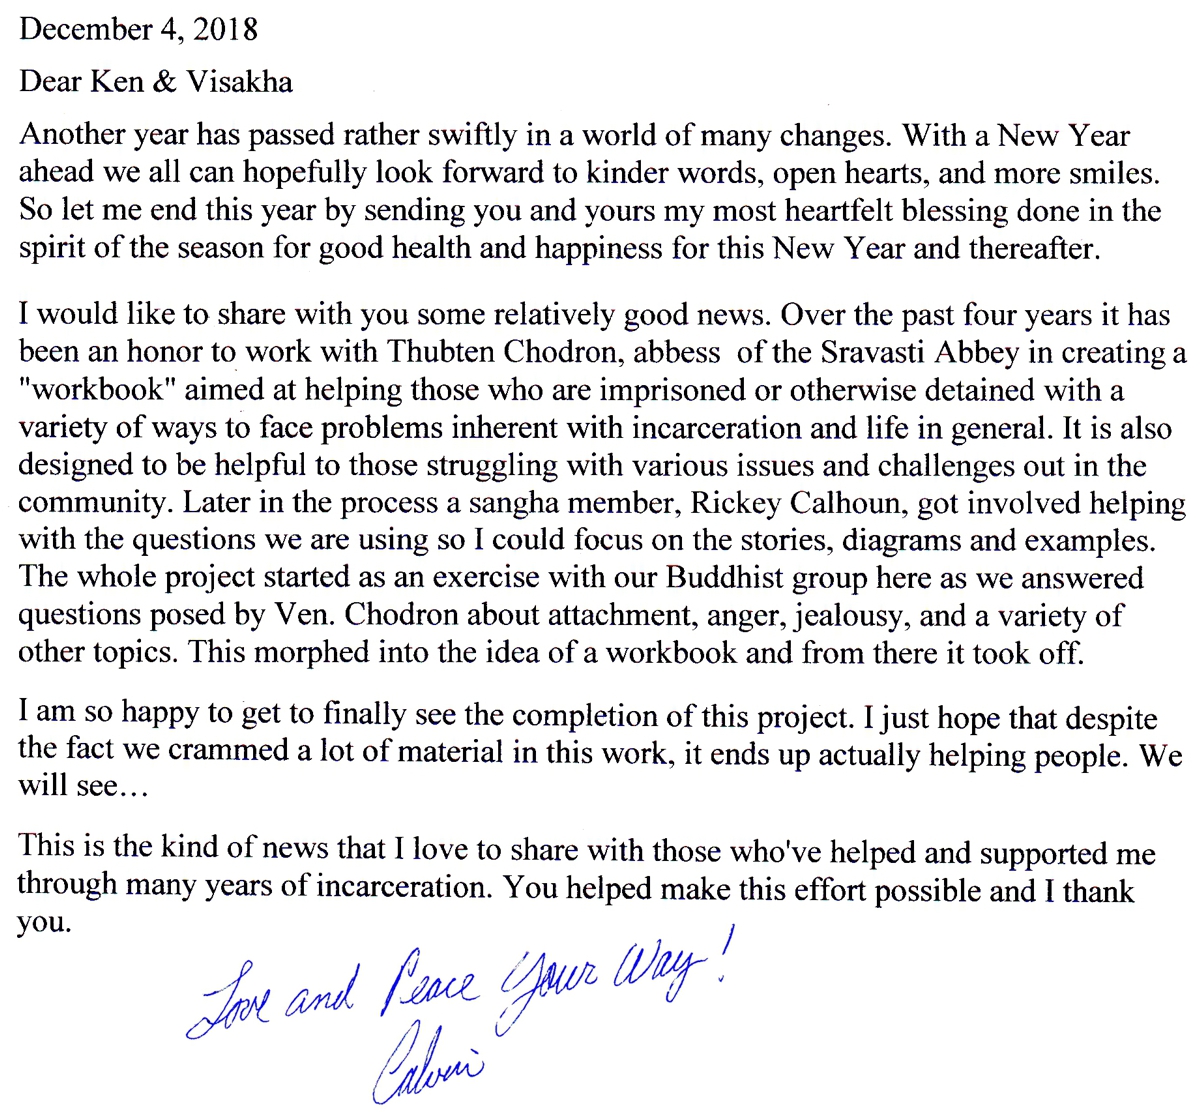 December 4, 2018
Dear Ken & Visakha
Another year has passed rather swiftly in a world of many changes. With a New Year
ahead we all can hopefully look forward to kinder words, open hearts, and more smiles.
So let me end this year by sending you and yours my most heartfelt blessing done in the
spirit of the season for good health and happiness for this New Year and thereafter.
I would like to share with you some relatively good news. Over the past four years it has
been an honor to work with Thubten Chodron, abbess  of the Sravasti Abbey in creating a
"workbook" aimed at helping those who are imprisoned or otherwise detained with a
variety of ways to face problems inherent with incarceration and life in general. It is also
designed to be helpful to those struggling with various issues and challenges out in the
community. Later in the process a sangha member, Rickey Calhoun, got involved helping
with the questions we are using so I could focus on the stories, diagrams and examples.
The whole project started as an exercise with our Buddhist group here as we answered
questions posed by Ven. Chodron about attachment, anger, jealousy, and a variety of
other topics. This morphed into the idea of a workbook and from there it took off.
I am so happy to get to finally see the completion of this project. I just hope that despite
the fact we crammed a lot of material in this work, it ends up actually helping people. We
will see…
This is the kind of news that I love to share with those who've helped and supported me
through many years of incarceration. You helped make this effort possible and I thank
you.
Love and Peace Your Way!
Calvin